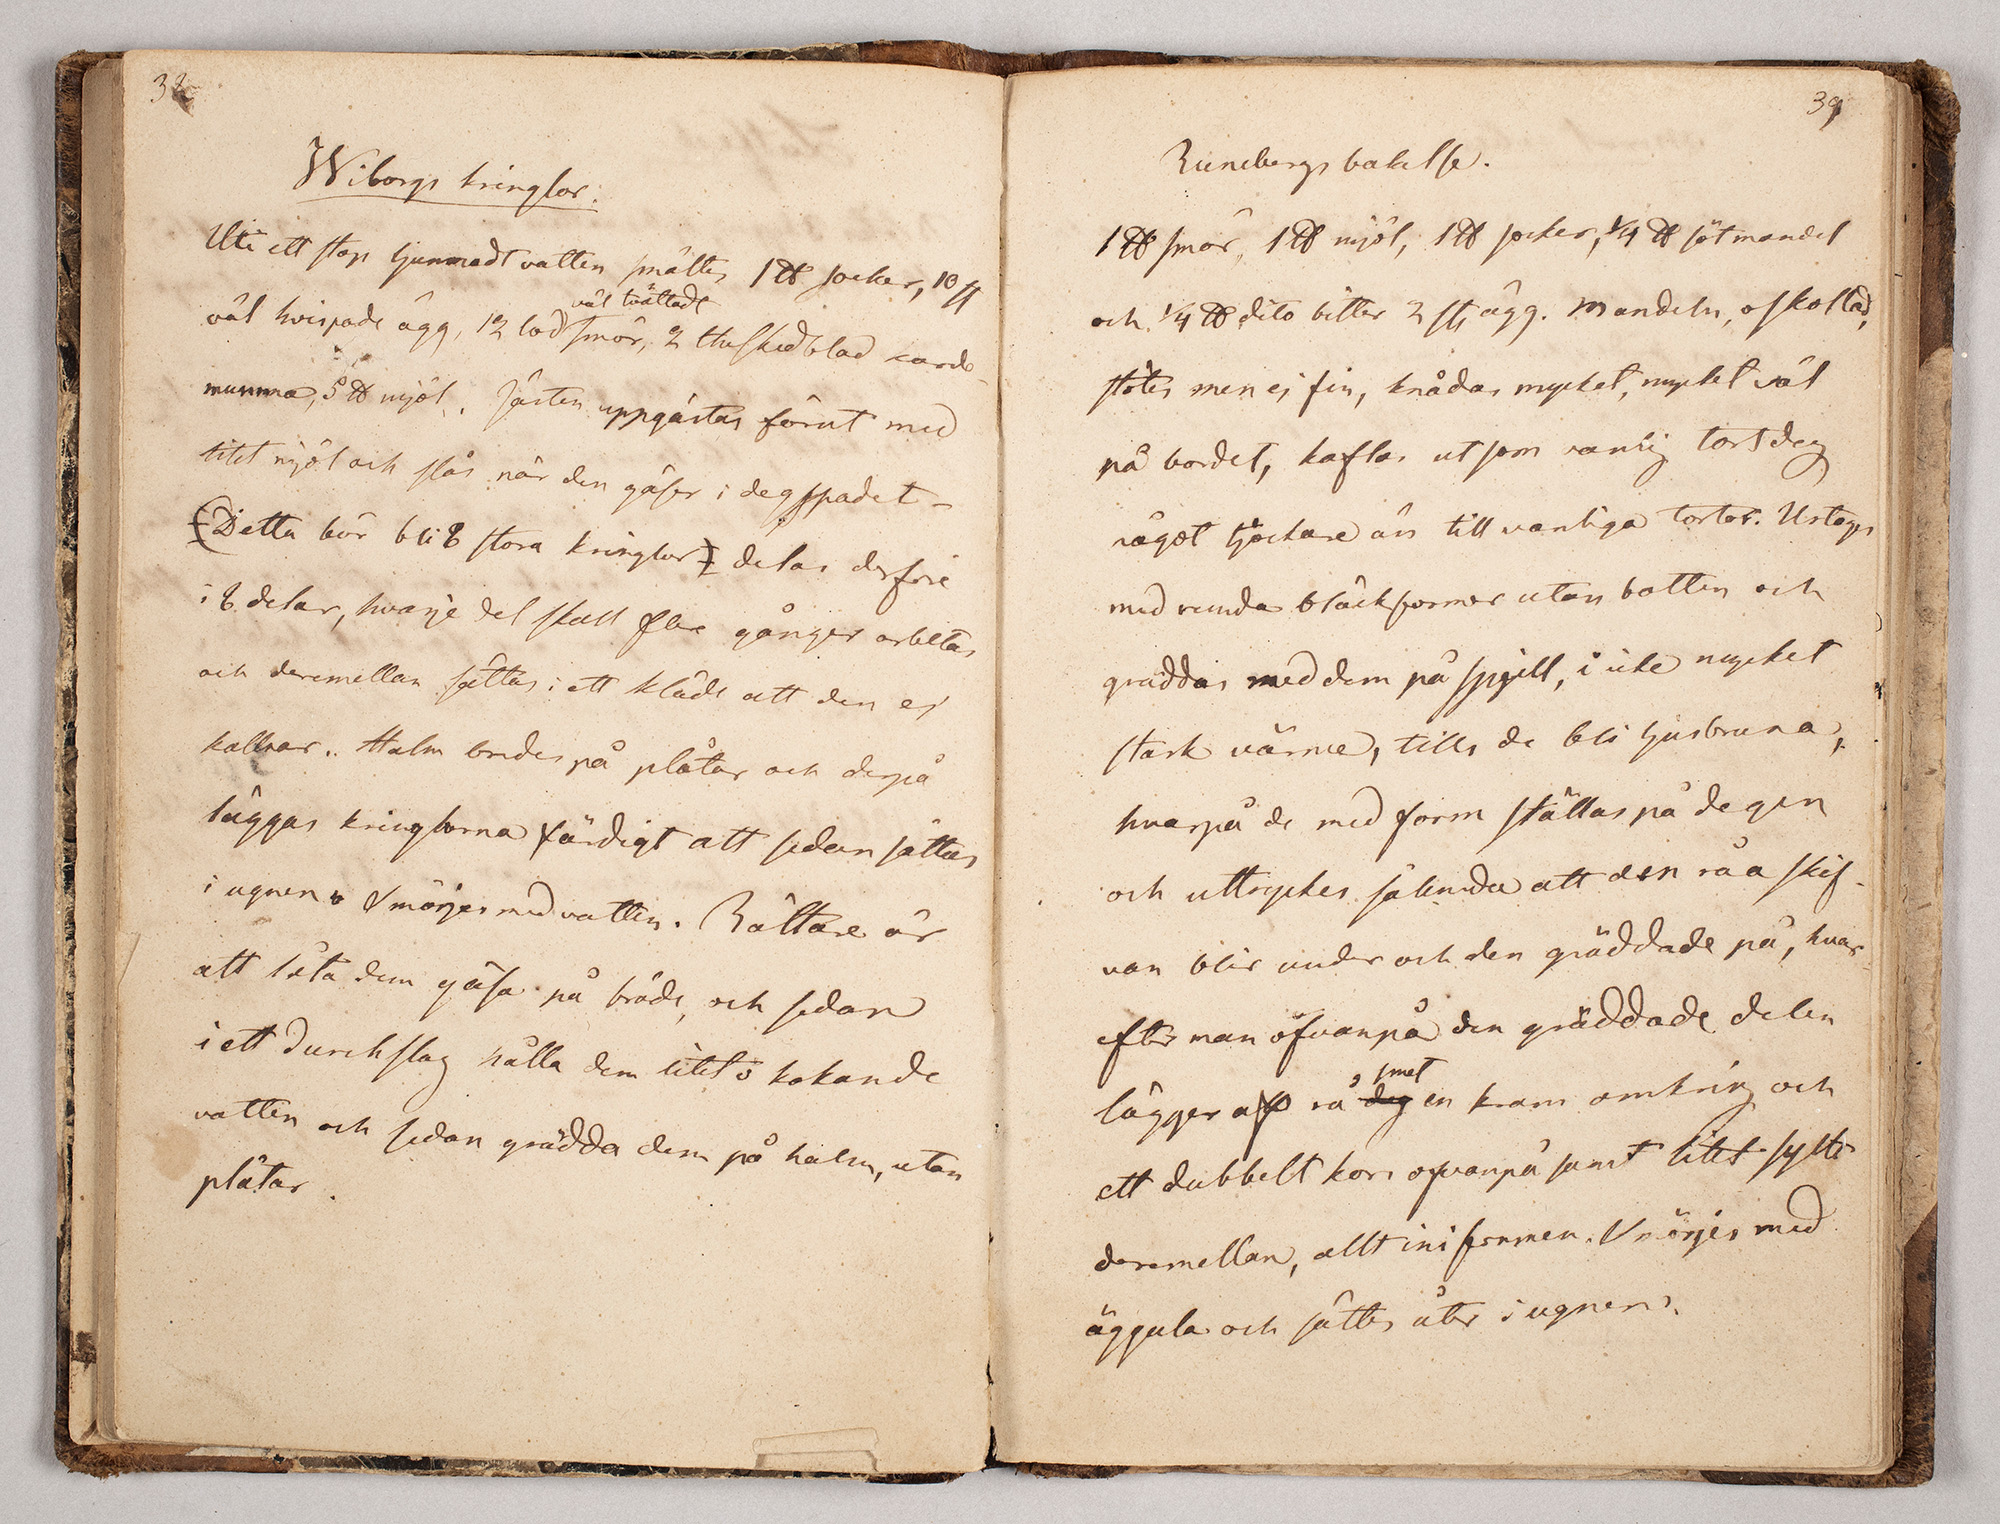 38
Wiborgs kringlor.
Uti ett stop ljummadt vatten smältes 1 ℔ socker, 10 st
väl tvättade
väl hvispade ägg, 12 lod smör, 2 theskedblad karde-
mumma, 5 ℔ mjöl. Jästen uppgästas förut med
litet mjöl och slås när den gäser i degspadet –
(Detta bör bli 8 stora kringlor) delas derföre
i 8 delar, hvarje del skall flere gånger arbetas
och deremellan sättas i ett kläde att den ej
kallnar. Halm bredes på plåtar och derpå
läggas kringlorna färdigt att sedan sättas
i ugnen. Smörjes med vatten. Rättare är
att låta dem gäsa på bräde, och sedan
i ett durchslag hålla dem litet i kokande
vatten och sedan grädda dem på halm, utan
plåtar.
39
Runebergs bakelse.
1 ℔ smör, 1 ℔ mjöl, 1 ℔ socker, 1/4 ℔ sötmandel
och 1/4 ℔ dito bitter 2 st ägg. Mandeln, oskållad,
stötes men ej fin, knådas mycket, mycket väl
på bordet, kaflas ut som vanlig tortdeg
något tjockare än till vanliga tortor. Uttages
med runda bläckformor utan botten och
gräddas med dem på spjell, i icke mycket
stark värme, tills de bli ljusbruna,
hvarpå de med form ställas på degen
och uttryckes sålunda att den råa skif-
van blir under och den gräddade på, hvar-
efter man ofvanpå den gräddade delen
smet
lägger af rå deg en krans omkring och
ett dubbelt kors ofvanpå samt litet sylt
deremellan, allt ini formen. Smörjes med
äggula och sättes åter i ugnen.